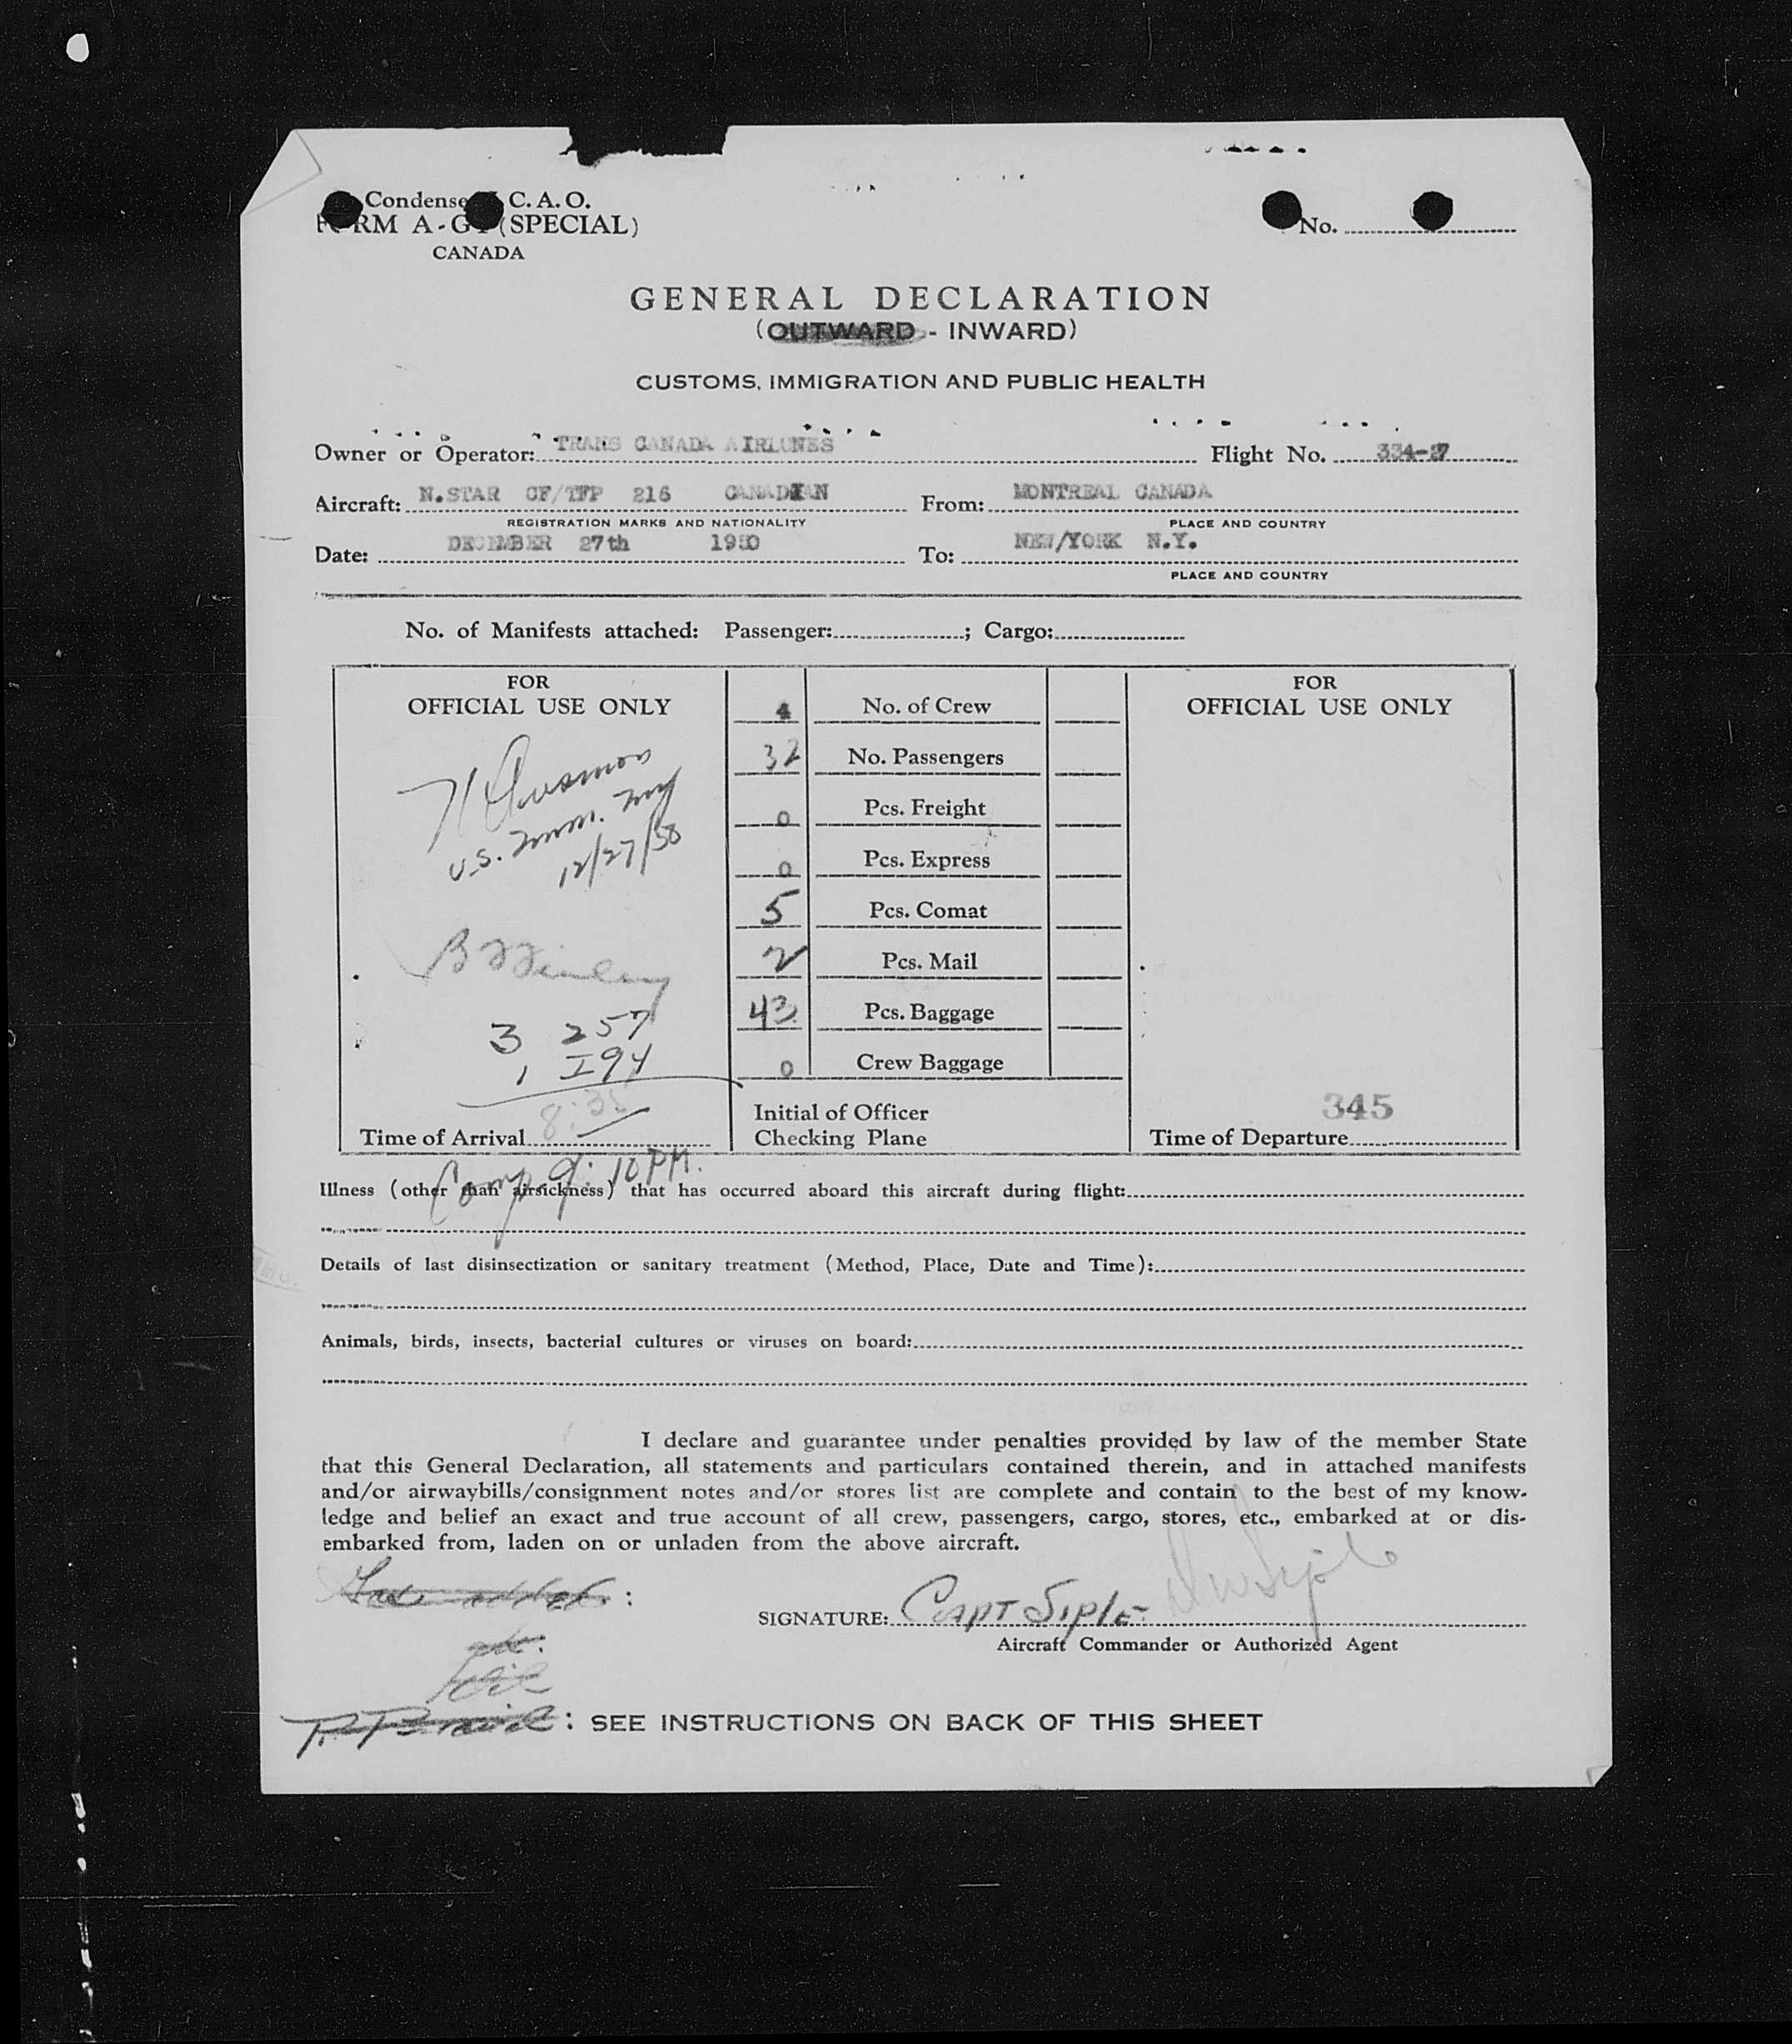 Condensed C. A. O.
FORM A-G1 (SPECIAL)
CANADA
No.
GENERAL DECLARATION
(OUTWARD - INWARD)
CUSTOMS, IMMIGRATION AND PUBLIC HEALTH
Owner or Operator: TRANS CANADA AIRLINES Flight No. 334-27
Aircraft: N.STAR CF/TFP 216 CANADIAN From: MONTREAL CANADA
REGISTRATION MARKS AND NATIONALITY PLACE AND COUNTRY
Date: DECEMBER 27th 1950 To: NEW/YORK N.Y.
PLACE AND COUNTRY
No. of Manifests attached: Passenger: ; Cargo:
FOR
OFFICIAL USE ONLY
U.S. Imm.
12/27/50
3 257
1 I94
8:35
Time of Arrival
4 No. of Crew
32 No. Passengers
0 Pcs. Freight
0 Pcs. Express
5 Pcs. Comat
2 Pcs. Mail
43 Pcs. Baggage
0 Crew Baggage
Initial of Officer
Checking Plane
FOR
OFFICIAL USE ONLY
345
Time of Departure
Comp. 9:10 PM.
Illness (other than airsickness) that has occurred aboard this aircraft during flight:
Details of last disinsectization or sanitary treatment (Method, Place, Date and Time):
Animals, birds, insects, bacterial cultures or viruses on board:
I declare and guarantee under penalties provided by law of the member State
that this General Declaration, all statements and particulars contained therein, and in attached manifests
and/or airwaybills/consignment notes and/or stores list are complete and contain to the best of my know-
ledge and belief an exact and true account of all crew, passengers, cargo, stores, etc., embarked at or dis-
embarked from, laden on or unladen from the above aircraft.
SIGNATURE: CAPT SIPLE
Aircraft Commander or Authorized Agent
: SEE INSTRUCTIONS ON BACK OF THIS SHEET